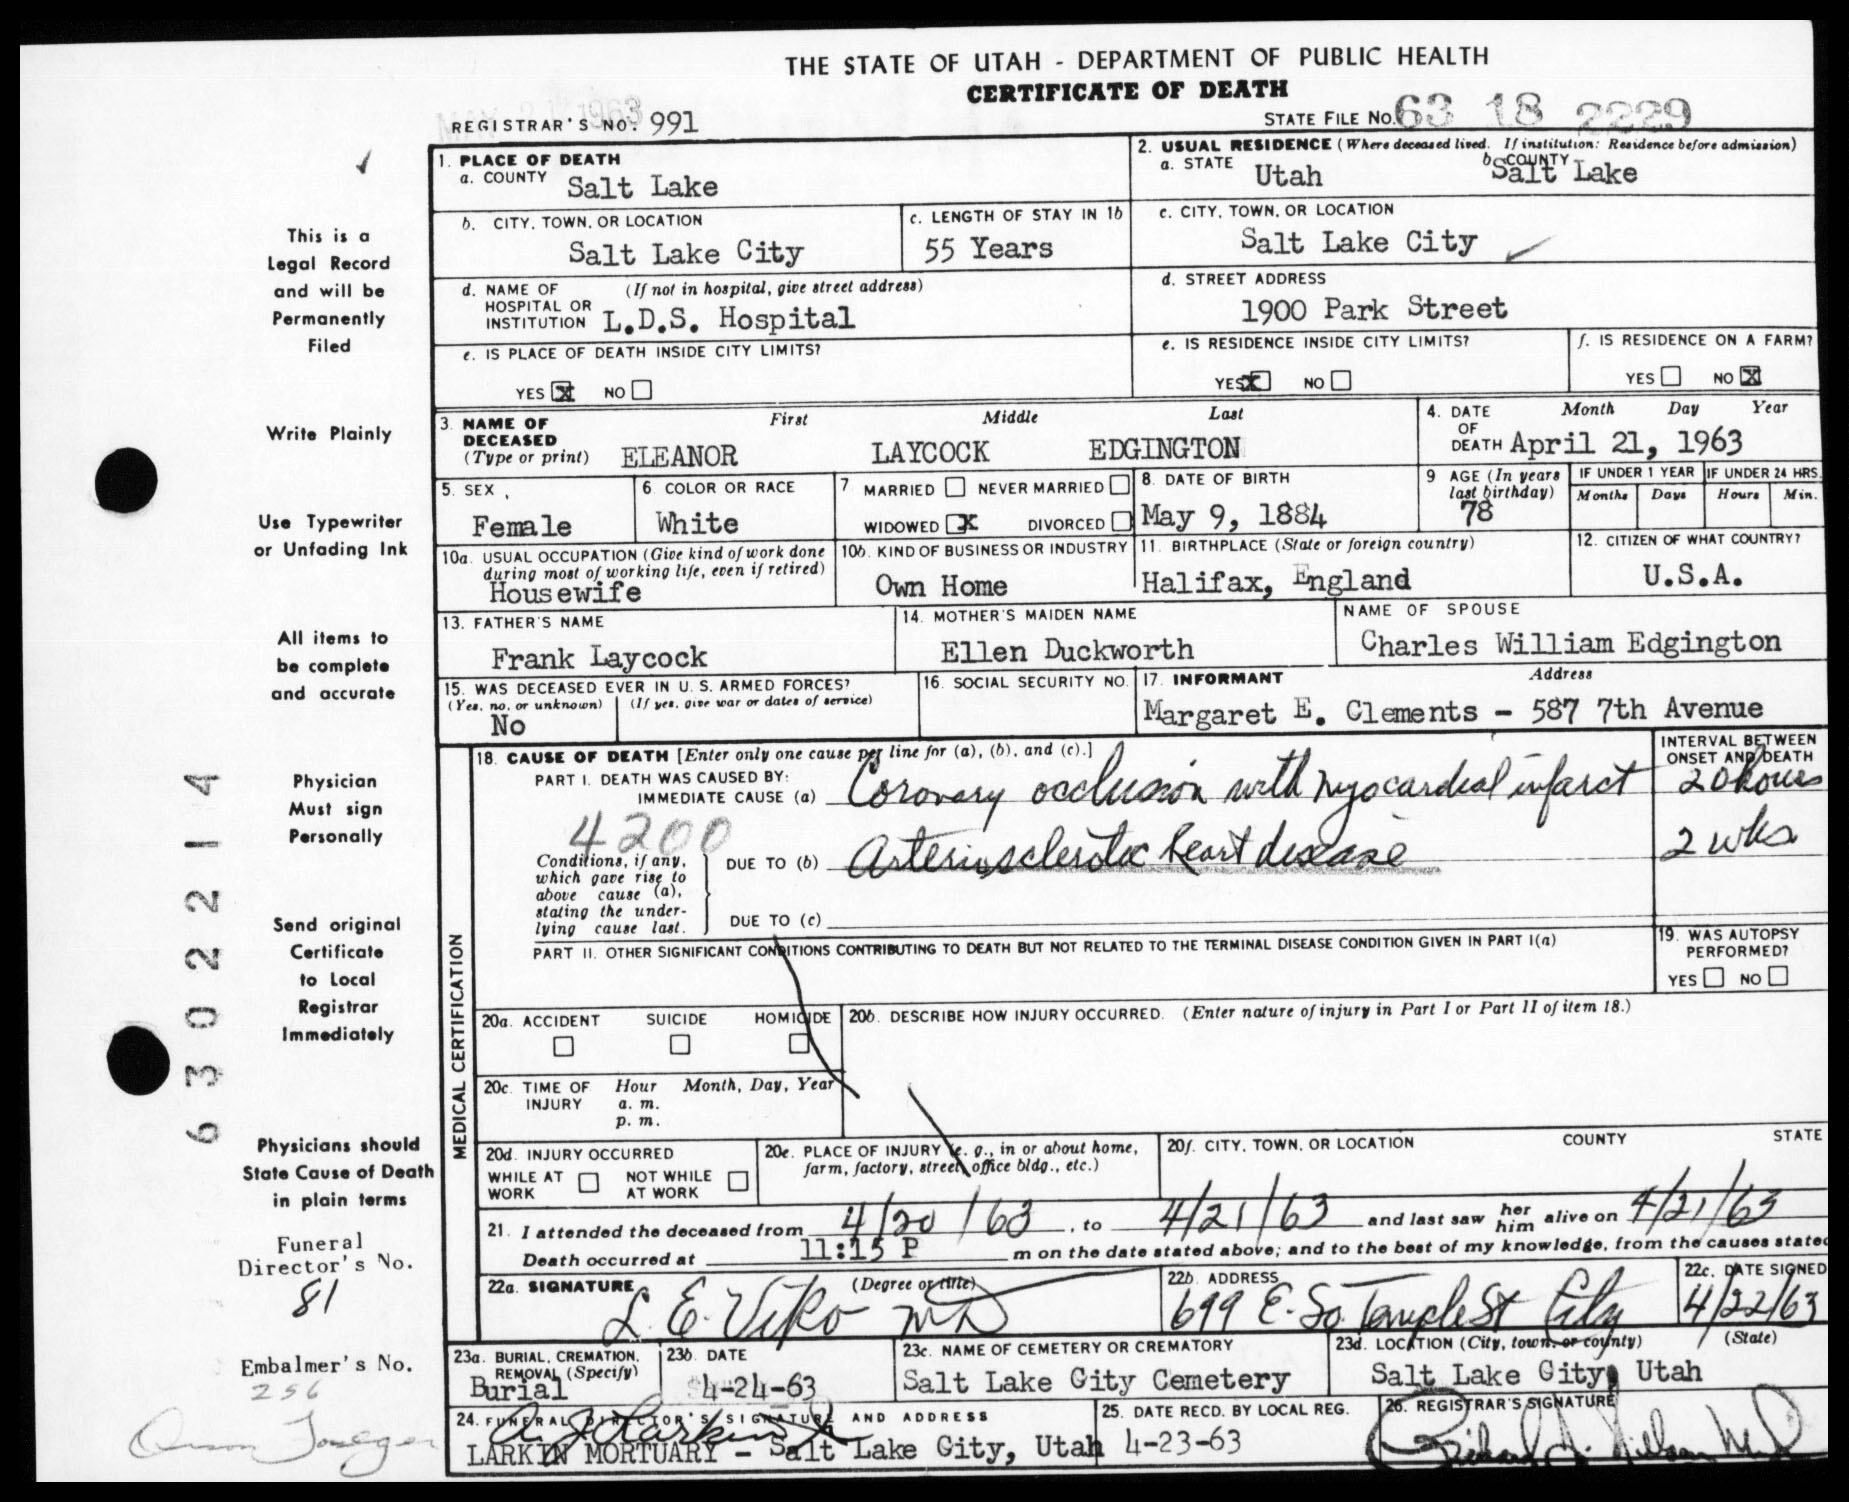 THE STATE OF UTAH - DEPARTMENT OF PUBLIC HEALTH
CERTIFICATE OF DEATH
MAY 1963
REGISTRAR'S NO. 991
STATE FILE NO. 63 18 2229
1. PLACE OF DEATH
a. COUNTY Salt Lake
2. USUAL RESIDENCE (Where deceased lived. If institution: Residence before admission)
a. STATE Utah b. COUNTY Salt Lake
b. CITY, TOWN, OR LOCATION
Salt Lake City
c. LENGTH OF STAY IN 1b
55 Years
c. CITY, TOWN, OR LOCATION
Salt Lake City
d. NAME OF HOSPITAL OR INSTITUTION (If not in hospital, give street address)
L.D.S. Hospital
d. STREET ADDRESS
1900 Park Street
e. IS PLACE OF DEATH INSIDE CITY LIMITS?
YES X NO
e. IS RESIDENCE INSIDE CITY LIMITS?
YES X NO
f. IS RESIDENCE ON A FARM?
YES NO X
3. NAME OF DECEASED (Type or print)
First Middle Last
ELEANOR LAYCOCK EDGINGTON
4. DATE OF DEATH
Month Day Year
April 21, 1963
5. SEX
Female
6. COLOR OR RACE
White
7. MARRIED NEVER MARRIED
WIDOWED X DIVORCED
8. DATE OF BIRTH
May 9, 1884
9 AGE (In years last birthday)
78
IF UNDER 1 YEAR
Months Days
IF UNDER 24 HRS.
Hours Min.
10a. USUAL OCCUPATION (Give kind of work done
during most of working life, even if retired)
Housewife
10b. KIND OF BUSINESS OR INDUSTRY
Own Home
11. BIRTHPLACE (State or foreign country)
Halifax, England
12. CITIZEN OF WHAT COUNTRY?
U.S.A.
13. FATHER'S NAME
Frank Laycock
14. MOTHER'S MAIDEN NAME
Ellen Duckworth
NAME OF SPOUSE
Charles William Edgington
15. WAS DECEASED EVER IN U. S. ARMED FORCES?
(Yes, no, or unknown) (If yes, give war or dates of service)
No
16. SOCIAL SECURITY NO.
17. INFORMANT Address
Margaret E. Clements - 587 7th Avenue
MEDICAL CERTIFICATION
18. CAUSE OF DEATH [Enter only one cause per line for (a), (b), and (c).]
INTERVAL BETWEEN ONSET AND DEATH
PART I. DEATH WAS CAUSED BY:
IMMEDIATE CAUSE (a) Coronary occlusion with myocardial infarct 20 hours
4200
Conditions, if any,
which gave rise to
above cause (a),
stating the under-
lying cause last.
DUE TO (b) Arteriosclerotic heart disease 2 wks
DUE TO (c)
PART II. OTHER SIGNIFICANT CONDITIONS CONTRIBUTING TO DEATH BUT NOT RELATED TO THE TERMINAL DISEASE CONDITION GIVEN IN PART I(a)
19. WAS AUTOPSY PERFORMED?
YES NO
20a. ACCIDENT SUICIDE HOMICIDE
20b. DESCRIBE HOW INJURY OCCURRED. (Enter nature of injury in Part I or Part II of item 18.)
20c. TIME OF INJURY
Hour Month, Day, Year
a. m.
p. m.
20d. INJURY OCCURRED
WHILE AT WORK NOT WHILE AT WORK
20e. PLACE OF INJURY (e. g., in or about home,
farm, factory, street, office bldg., etc.)
20f. CITY, TOWN, OR LOCATION COUNTY STATE
21. I attended the deceased from 4/20/63, to 4/21/63 and last saw her him alive on 4/21/63
Death occurred at 11:15 P m on the date stated above; and to the best of my knowledge, from the causes stated
22a. SIGNATURE (Degree or title)
L. E. Viko MD
22b. ADDRESS
699 E. So. Temple St City
22c. DATE SIGNED
4/22/63
23a. BURIAL, CREMATION, REMOVAL (Specify)
Burial
23b. DATE
4-24-63
23c. NAME OF CEMETERY OR CREMATORY
Salt Lake City Cemetery
23d. LOCATION (City, town, or county) (State)
Salt Lake City, Utah
24. FUNERAL DIRECTOR'S SIGNATURE AND ADDRESS
LARKIN MORTUARY - Salt Lake City, Utah
25. DATE RECD. BY LOCAL REG.
4-23-63
26. REGISTRAR'S SIGNATURE
This is a
Legal Record
and will be
Permanently
Filed
Write Plainly
Use Typewriter
or Unfading Ink
All items to
be complete
and accurate
Physician
Must sign
Personally
Send original
Certificate
to Local
Registrar
Immediately
Physicians should
State Cause of Death
in plain terms
Funeral
Director's No.
81
Embalmer's No.
256
630022 14